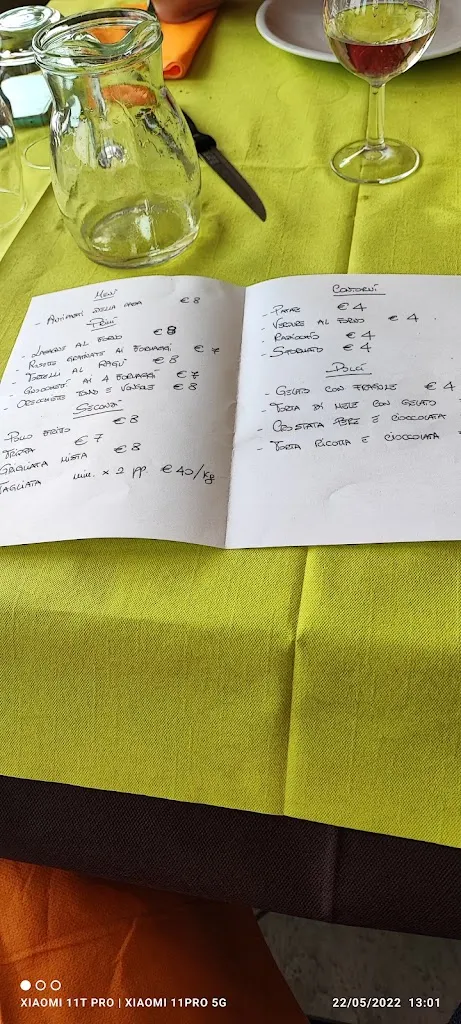 MENÙ
- ANTIPASTI DELLA CASA € 8
PRIMI
- LASAGNE AL FORNO € 8
- RISOTTO GRATINATO AI FORMAGGI € 7
- TORTELLI AL RAGÙ € 8
- GNOCCHETTI AI 4 FORMAGGI € 7
- ORECCHIETTE TONNO E VONGOLE € 8
SECONDI
POLLO FRITO € 8
TRIPPA € 7
GRIGLIATA MISTA € 8
TAGLIATA min. x 2 pp. € 40/kg
CONTORNI
- PATATE € 4
- VERDURE AL FORNO € 4
- RADICCHIO € 4
- € 4
DOLCI
- GELATO CON FRAGOLE € 4
- TORTA DI MELE CON GELATO
- CROSTATA PERE E CIOCCOLATA
- TORTA RICOTTA E CIOCCOLATA
XIAOMI 11T PRO | XIAOMI 11PRO 5G
22/05/2022 13:01